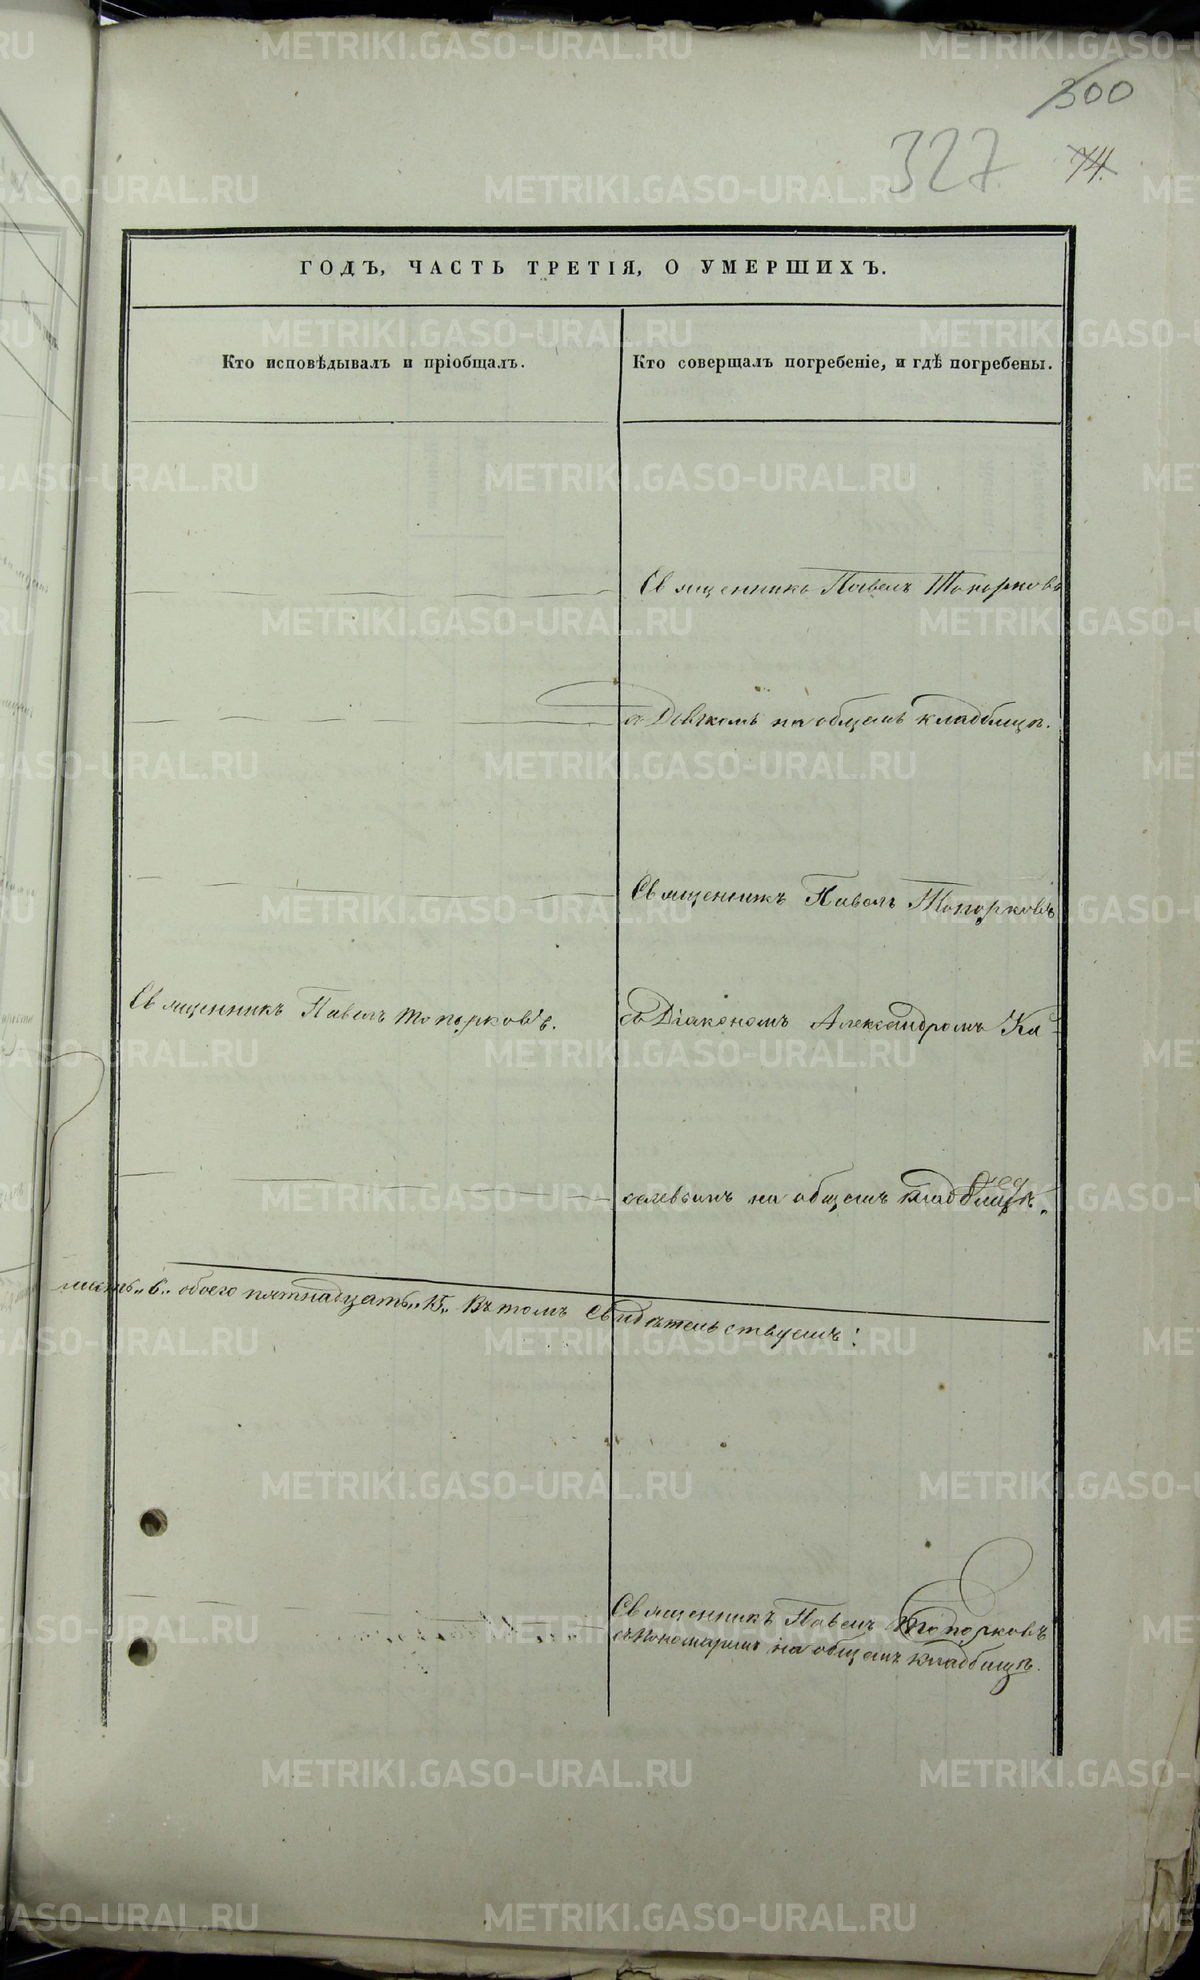 300
327
74.
ГОДЪ, ЧАСТЬ ТРЕТІЯ, О УМЕРШИХЪ.
Кто исповѣдывалъ и пріобщалъ.
Кто совершалъ погребеніе, и гдѣ погребены.
Священникъ Павелъ Топорковъ
съ Дьячкомъ на общемъ кладбищѣ.
Священникъ Павелъ Топорковъ
Священникъ Павелъ Топорковъ.
съ Діакономъ Александромъ
на общемъ кладбищѣ.
„6„ обоего пятнадцать „15„ Въ томъ свидѣтельствуемъ:
Священникъ Павелъ Топорковъ
съ Пономаремъ на общемъ кладбищѣ.
METRIKI.GASO-URAL.RU